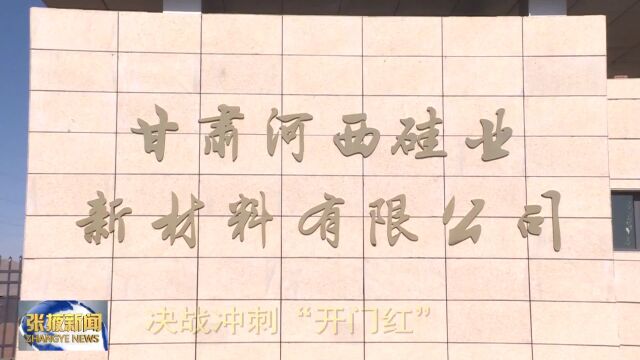 甘肃河西硅业
新材料有限公司
张掖新闻
ZHANGYE NEWS
决战冲刺“开门红”